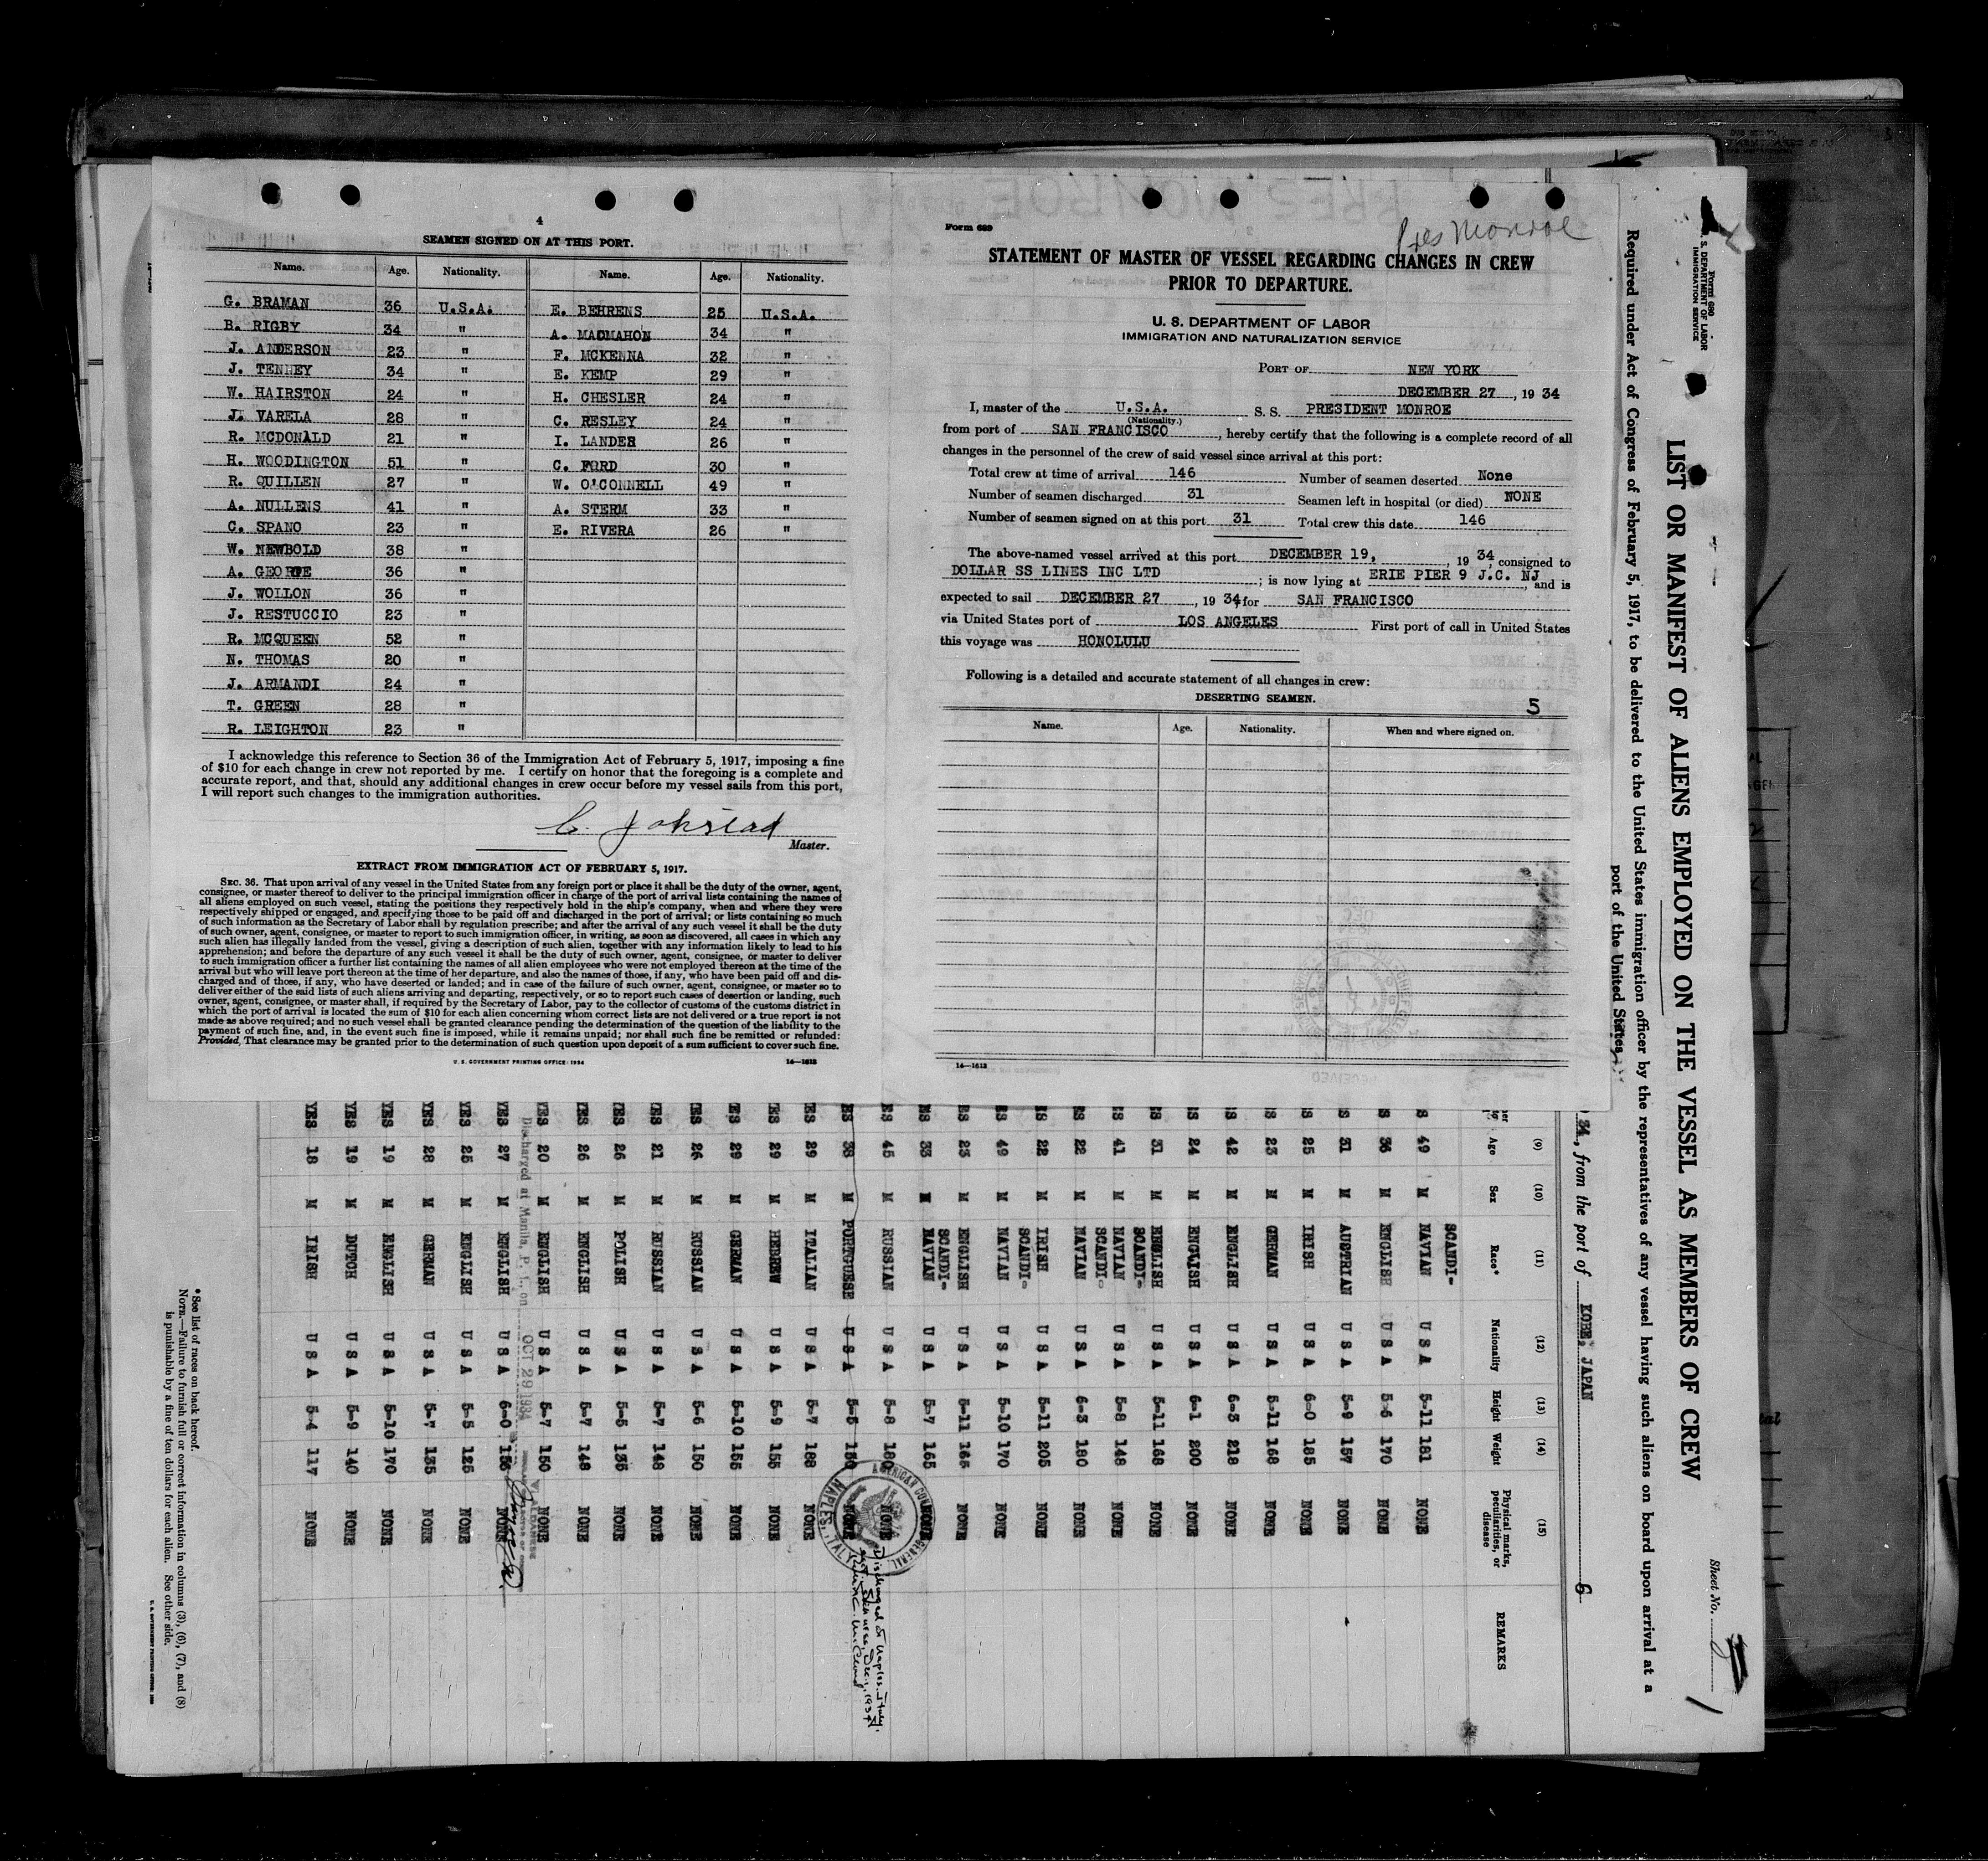 4
SEAMEN SIGNED ON AT THIS PORT.
Name. Age. Nationality. Name. Age. Nationality.
G. BRAMAN 36 U.S.A. E. BEHRENS 25 U.S.A.
B. RIGBY 34 " A. MACMAHON 34 "
J. ANDERSON 23 " F. MCKENNA 32 "
J. TENNEY 34 " E. KEMP 29 "
W. HAIRSTON 24 " H. CHESLER 24 "
J. VARELA 28 " C. RESLEY 24 "
R. MCDONALD 21 " I. LANDES 26 "
H. WOODINGTON 51 " C. FORD 30 "
R. QUILLEN 27 " W. O'CONNELL 49 "
A. NULLENS 41 " A. STERM 33 "
C. SPANO 23 " E. RIVERA 26 "
W. NEWBOLD 38 "
A. GEORGE 36 "
J. WOLLON 36 "
J. RESTUCCIO 23 "
R. MCQUEEN 52 "
N. THOMAS 20 "
J. ARMANDI 24 "
T. GREEN 28 "
R. LEIGHTON 23 "
I acknowledge this reference to Section 36 of the Immigration Act of February 5, 1917, imposing a fine
of $10 for each change in crew not reported by me. I certify on honor that the foregoing is a complete and
accurate report, and that, should any additional changes in crew occur before my vessel sails from this port,
I will report such changes to the immigration authorities.
C. Johstad
Master.
EXTRACT FROM IMMIGRATION ACT OF FEBRUARY 5, 1917.
SEC. 36. That upon arrival of any vessel in the United States from any foreign port or place it shall be the duty of the owner, agent,
consignee, or master thereof to deliver to the principal immigration officer in charge of the port of arrival lists containing the names of
all aliens employed on such vessel, stating the positions they respectively hold in the ship's company, when and where they were
respectively shipped or engaged, and specifying those to be paid off and discharged in the port of arrival; or lists containing so much
of such information as the Secretary of Labor shall by regulation prescribe; and after the arrival of any such vessel it shall be the duty
of such owner, agent, consignee, or master to report to such immigration officer, in writing, as soon as discovered, all cases in which any
such alien has illegally landed from the vessel, giving a description of such alien, together with any information likely to lead to his
apprehension; and before the departure of any such vessel it shall be the duty of such owner, agent, consignee, or master to deliver
to such immigration officer a further list containing the names of all alien employees who were not employed thereon at the time of the
arrival but who will leave port thereon at the time of her departure, and also the names of those, if any, who have been paid off and dis-
charged and of those, if any, who have deserted or landed; and in case of the failure of such owner, agent, consignee, or master so to
deliver either of the said lists of such aliens arriving and departing, respectively, or so to report such cases of desertion or landing, such
owner, agent, consignee, or master shall, if required by the Secretary of Labor, pay to the collector of customs of the customs district in
which the port of arrival is located the sum of $10 for each alien concerning whom correct lists are not delivered or a true report is not
made as above required; and no such vessel shall be granted clearance pending the determination of the question of the liability to the
payment of such fine, and, in the event such fine is imposed, while it remains unpaid; nor shall such fine be remitted or refunded:
Provided, That clearance may be granted prior to the determination of such question upon deposit of a sum sufficient to cover such fine.
U. S. GOVERNMENT PRINTING OFFICE: 1934 14—1613
Form 689
Pres Monroe
STATEMENT OF MASTER OF VESSEL REGARDING CHANGES IN CREW
PRIOR TO DEPARTURE.
U. S. DEPARTMENT OF LABOR
IMMIGRATION AND NATURALIZATION SERVICE
PORT OF NEW YORK
DECEMBER 27, 19 34
I, master of the U.S.A. S. S. PRESIDENT MONROE
(Nationality.)
from port of SAN FRANCISCO, hereby certify that the following is a complete record of all
changes in the personnel of the crew of said vessel since arrival at this port:
Total crew at time of arrival 146 Number of seamen deserted None
Number of seamen discharged 31 Seamen left in hospital (or died) NONE
Number of seamen signed on at this port 31 Total crew this date 146
The above-named vessel arrived at this port DECEMBER 19, 19 34, consigned to
DOLLAR SS LINES INC LTD; is now lying at ERIE PIER 9 J.C. NJ, and is
expected to sail DECEMBER 27, 19 34 for SAN FRANCISCO
via United States port of LOS ANGELES First port of call in United States
this voyage was HONOLULU
Following is a detailed and accurate statement of all changes in crew:
DESERTING SEAMEN. 5
Name. Age. Nationality. When and where signed on.
14—1613
Form 680
U. S. DEPARTMENT OF LABOR
IMMIGRATION SERVICE
Sheet No.
LIST OR MANIFEST OF ALIENS EMPLOYED ON THE VESSEL AS MEMBERS OF CREW
Required under Act of Congress of February 5, 1917, to be delivered to the United States immigration officer by the representatives of any vessel having such aliens on board upon arrival at a
port of the United States
34, from the port of KOBE, JAPAN 6
(9) (10) (11) (12) (13) (14) (15)
Age Sex Race* Nationality Height Weight Physical marks, peculiarities, or disease REMARKS
49 M SCANDI-NAVIAN U S A 5-11 181 NONE
36 M ENGLISH U S A 5-6 170 NONE
31 M AUSTRIAN U S A 5-9 157 NONE
25 M IRISH U S A 6-0 185 NONE
23 M GERMAN U S A 5-11 168 NONE
42 M ENGLISH U S A 6-3 218 NONE
24 M ENGLISH U S A 6-1 200 NONE
31 M ENGLISH U S A 5-11 168 NONE
41 M SCANDI-NAVIAN U S A 5-8 148 NONE
22 M SCANDI-NAVIAN U S A 6-3 180 NONE
22 M IRISH U S A 5-11 205 NONE
49 M SCANDI-NAVIAN U S A 5-10 170 NONE
23 M ENGLISH U S A 5-11 165 NONE
33 M SCANDI-NAVIAN U S A 5-7 165 NONE
45 M RUSSIAN U S A 5-8 180 NONE
38 M PORTGUESE U S A 5-5 150 NONE
29 M ITALIAN U S A 5-7 168 NONE
29 M HEBREW U S A 5-9 155 NONE
29 M GERMAN U S A 5-10 155 NONE
26 M RUSSIAN U S A 5-6 150 NONE
YES 21 M RUSSIAN U S A 5-7 148 NONE
YES 26 M POLISH U S A 5-5 135 NONE
YES 26 M ENGLISH U S A 5-7 148 NONE
YES 20 M ENGLISH U S A 5-7 150 NONE
Discharged at Manila, P. I., on OCT 29 1934
YES 27 M ENGLISH U S A 6-0 156 NONE
YES 25 M ENGLISH U S A 5-5 125 NONE
YES 28 M GERMAN U S A 5-7 135 NONE
YES 19 M ENGLISH U S A 5-10 170 NONE
YES 19 M DUTCH U S A 5-9 140 NONE
YES 18 M IRISH U S A 5-4 117 NONE
AMERICAN CONSULATE GENERAL
NAPLES, ITALY
Discharged at Naples, Italy,
Dec. 1, 1934
* See list of races on back hereof.
NOTE.—Failure to furnish full or correct information in columns (3), (6), (7), and (8)
is punishable by a fine of ten dollars for each alien. See other side.